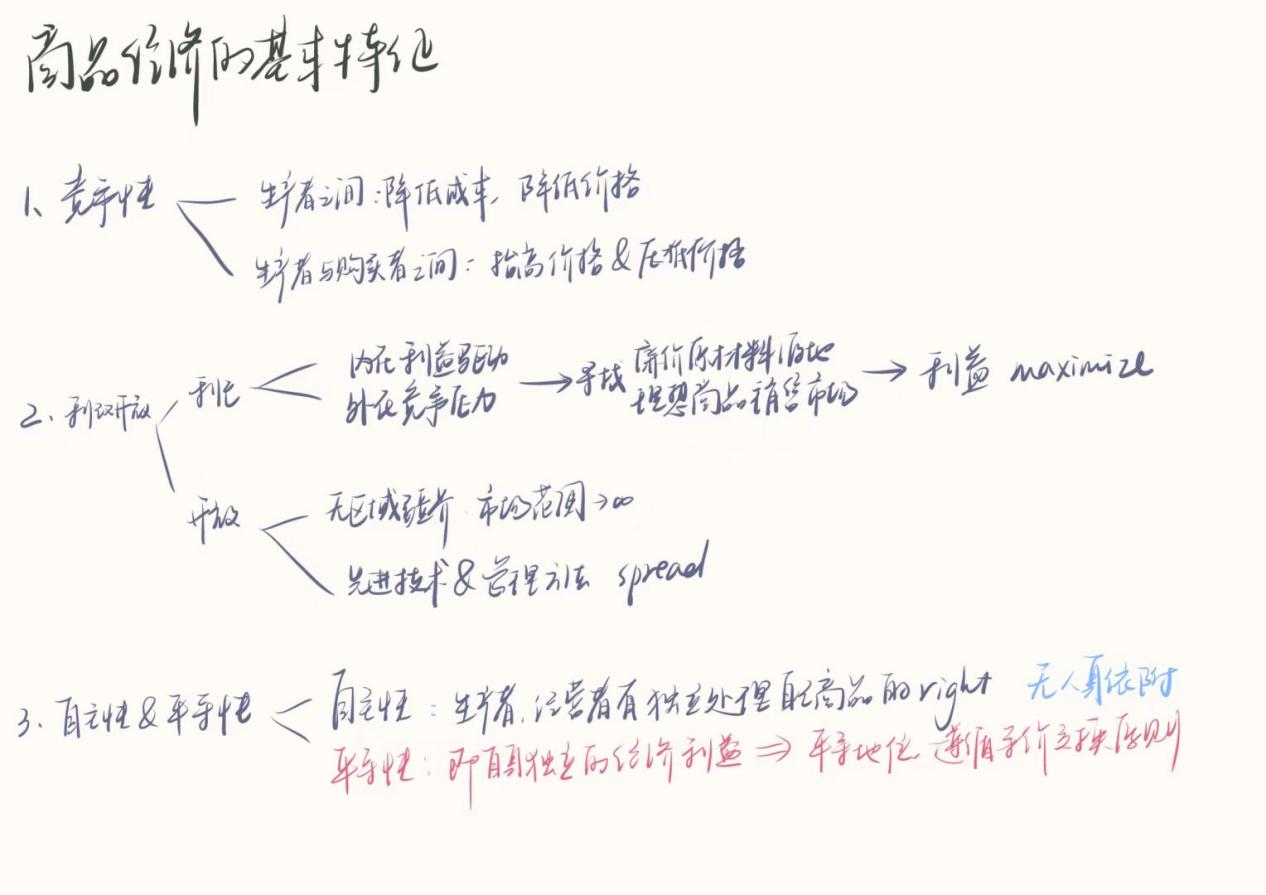 商品经济的基本特征
1、竞争性
生产者之间:降低成本,降低价格
生产者与购买者之间:抬高价格&压低价格
2、利己开放
利己
内在利益驱动
外在竞争压力
→寻找
廉价原材料源地
理想商品销售市场
→利益 maximize
开放
无区域疆界 市场范围→∞
先进技术&管理方法 spread
3、自主性&平等性
自主性:生产者、经营者有独立处理自己商品的right 无人身依附
平等性:即有独立的经济利益⇒平等地位 遵循等价交换原则